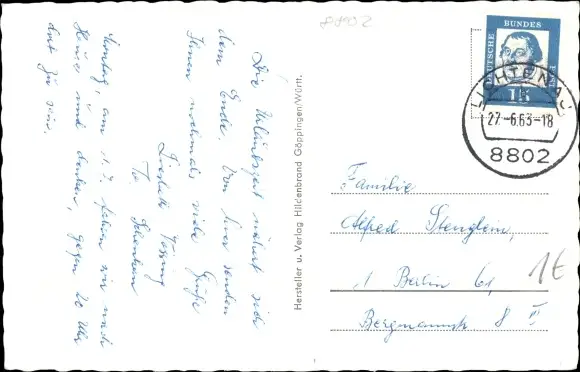 8802
Die Urlaubszeit nähert sich
dem Ende. Von hier senden
Ihnen nochmals viele Grüße
Sonntag, am 1.7. fahren wir nach
Hause und denken, gegen 20 Uhr
dort zu sein.
Hersteller u. Verlag Hildenbrand Göppingen/Württ.
DEUTSCHE BUNDES
15
LICHTENAU
27.-6.63-18
8802
Familie
Alfred Stenglein,
1 Berlin 61,
Bergmannstr 8 II
1€